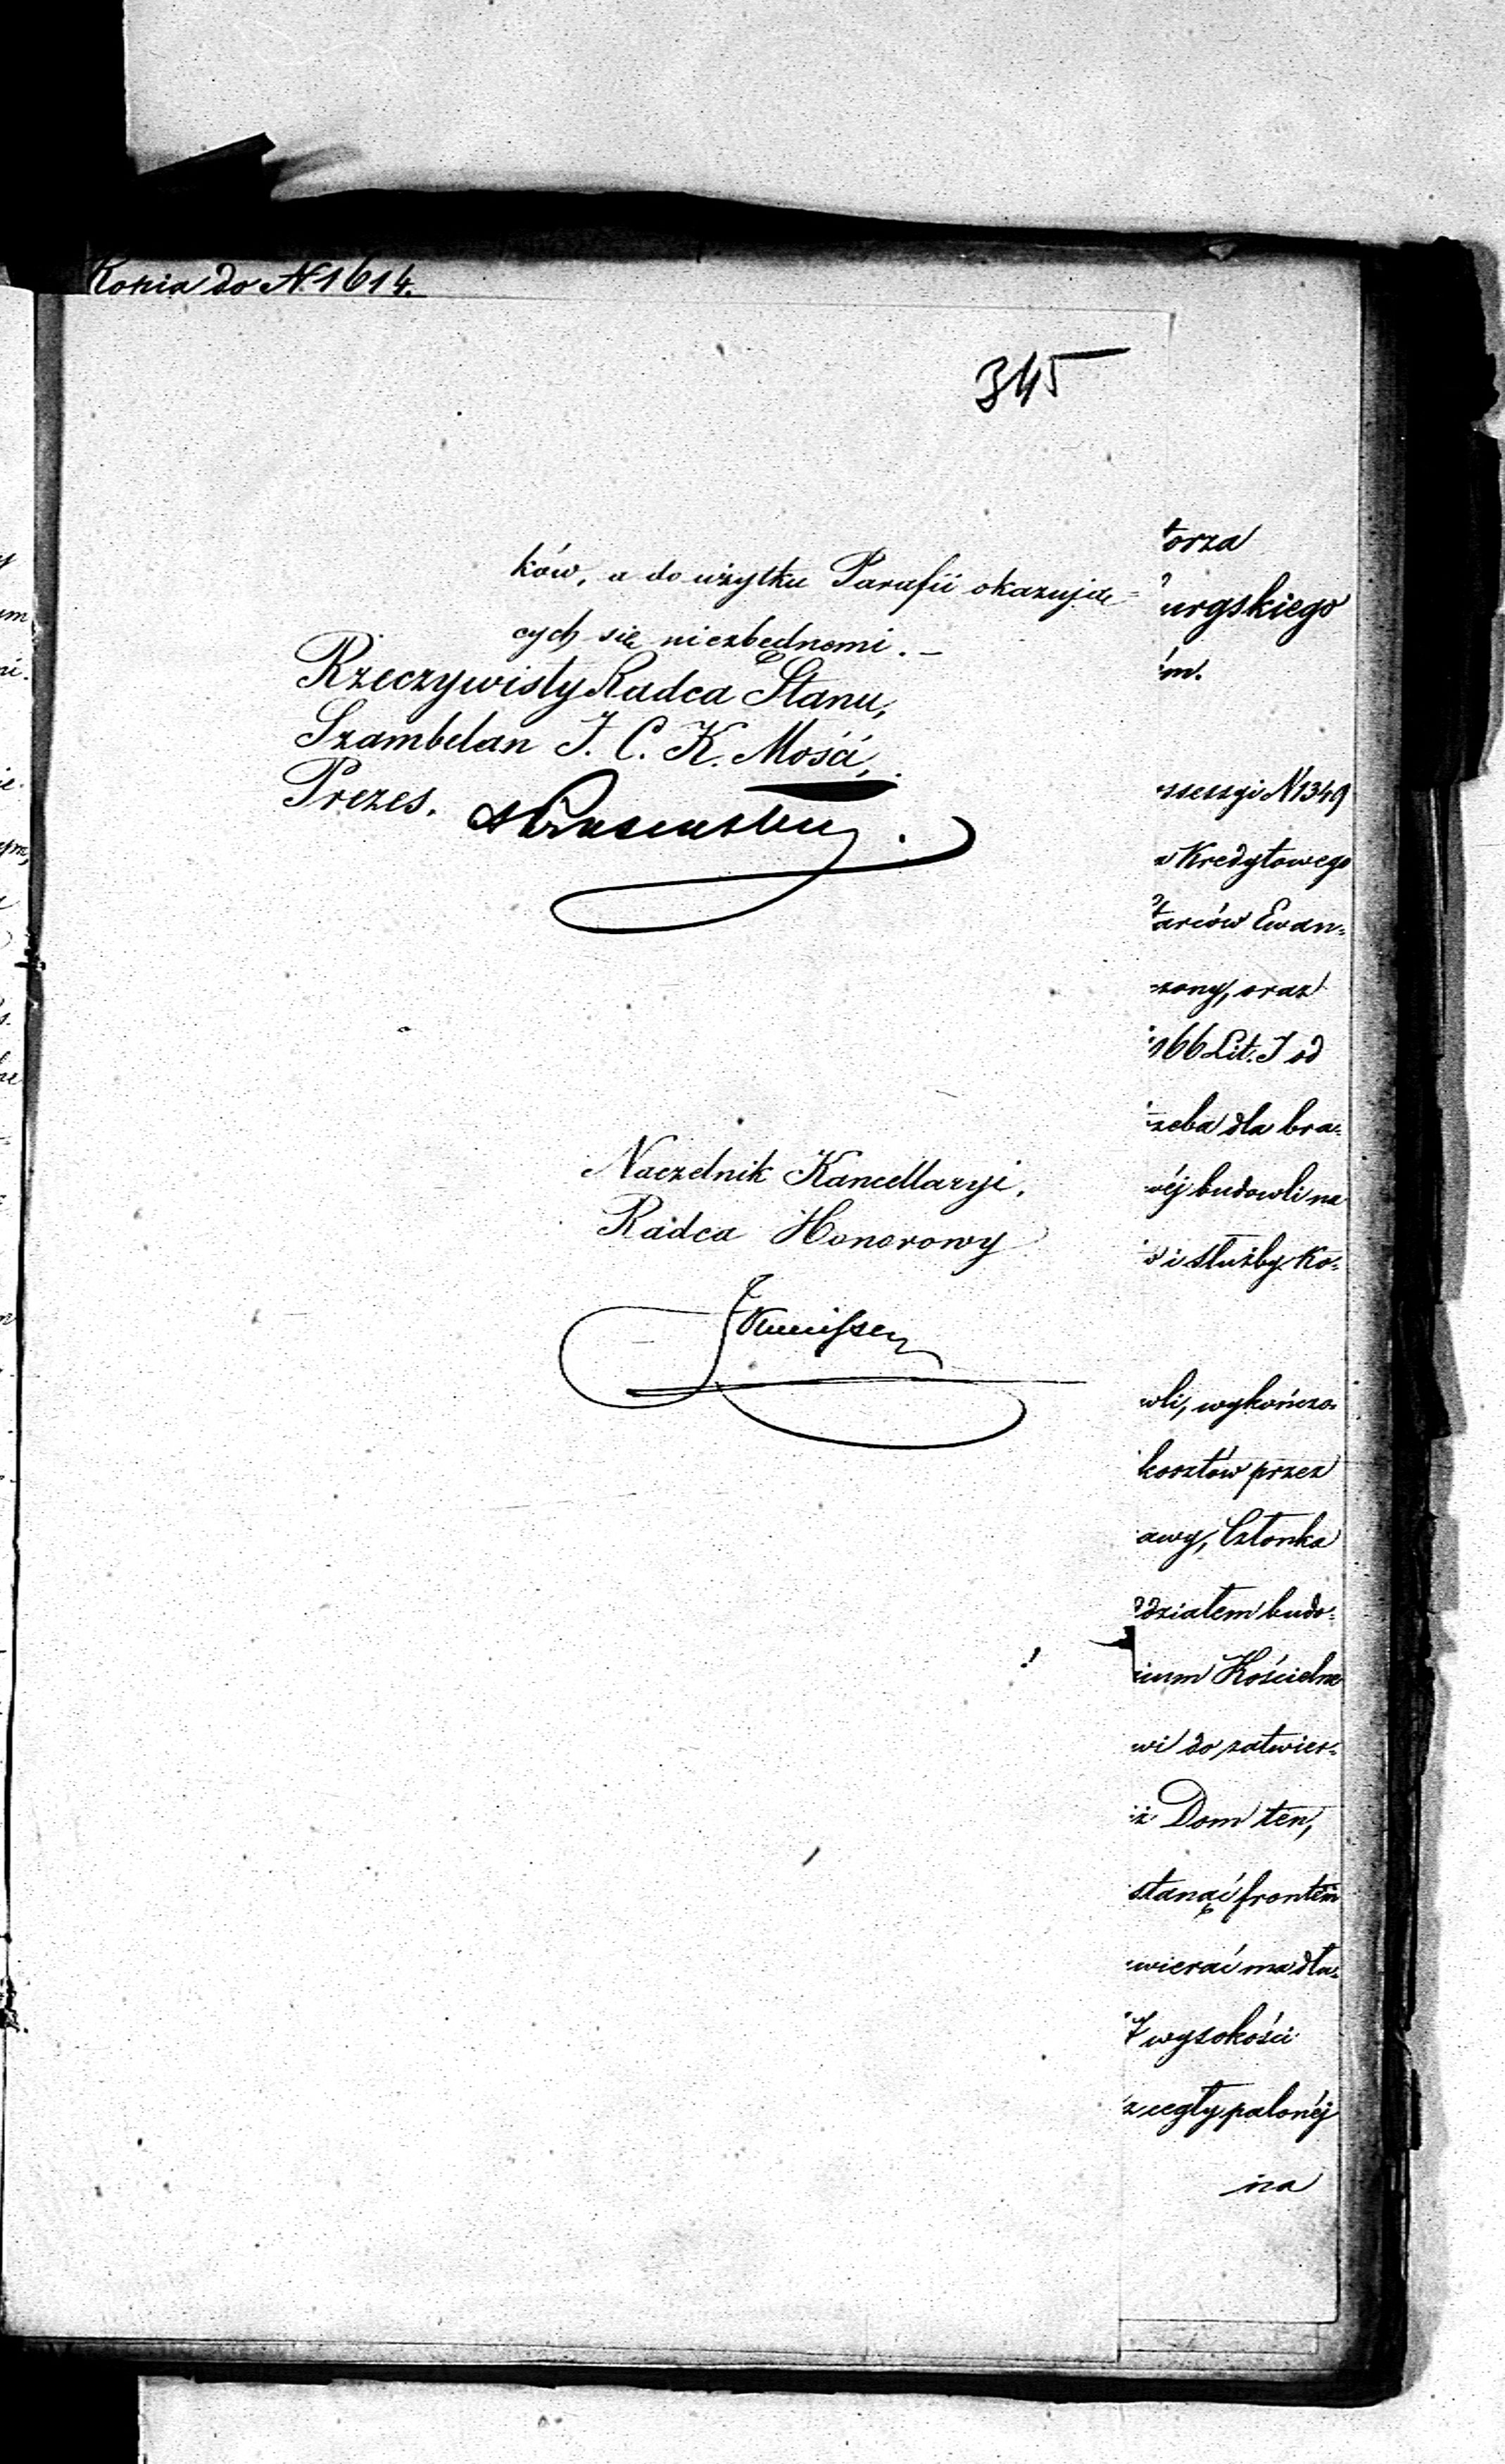 Kopia do N. 1614.
345
ków, a do użytku Parafii okazują=
cych się niezbędnemi. –
Rzeczywisty Radca Stanu,
Szambelan J. C. K. Mości,
Prezes.
Naczelnik Kancellaryi,
Radca Honorowy
torza
urgskiego
m.
ssessyi N 1349
a Kredytowego
tarców Ewan=
zony, oraz
166 Lit. J od
zeba dla bra=
wéj budowli na
i służby Ko=
wli, wykończo=
kosztów przez
awy, Członka
działem budo=
ium Kościelne
wi do zatwier=
iż Dom ten,
stanąć frontem
wierać ma dłu=
wysokości
z cegły palonéj
na